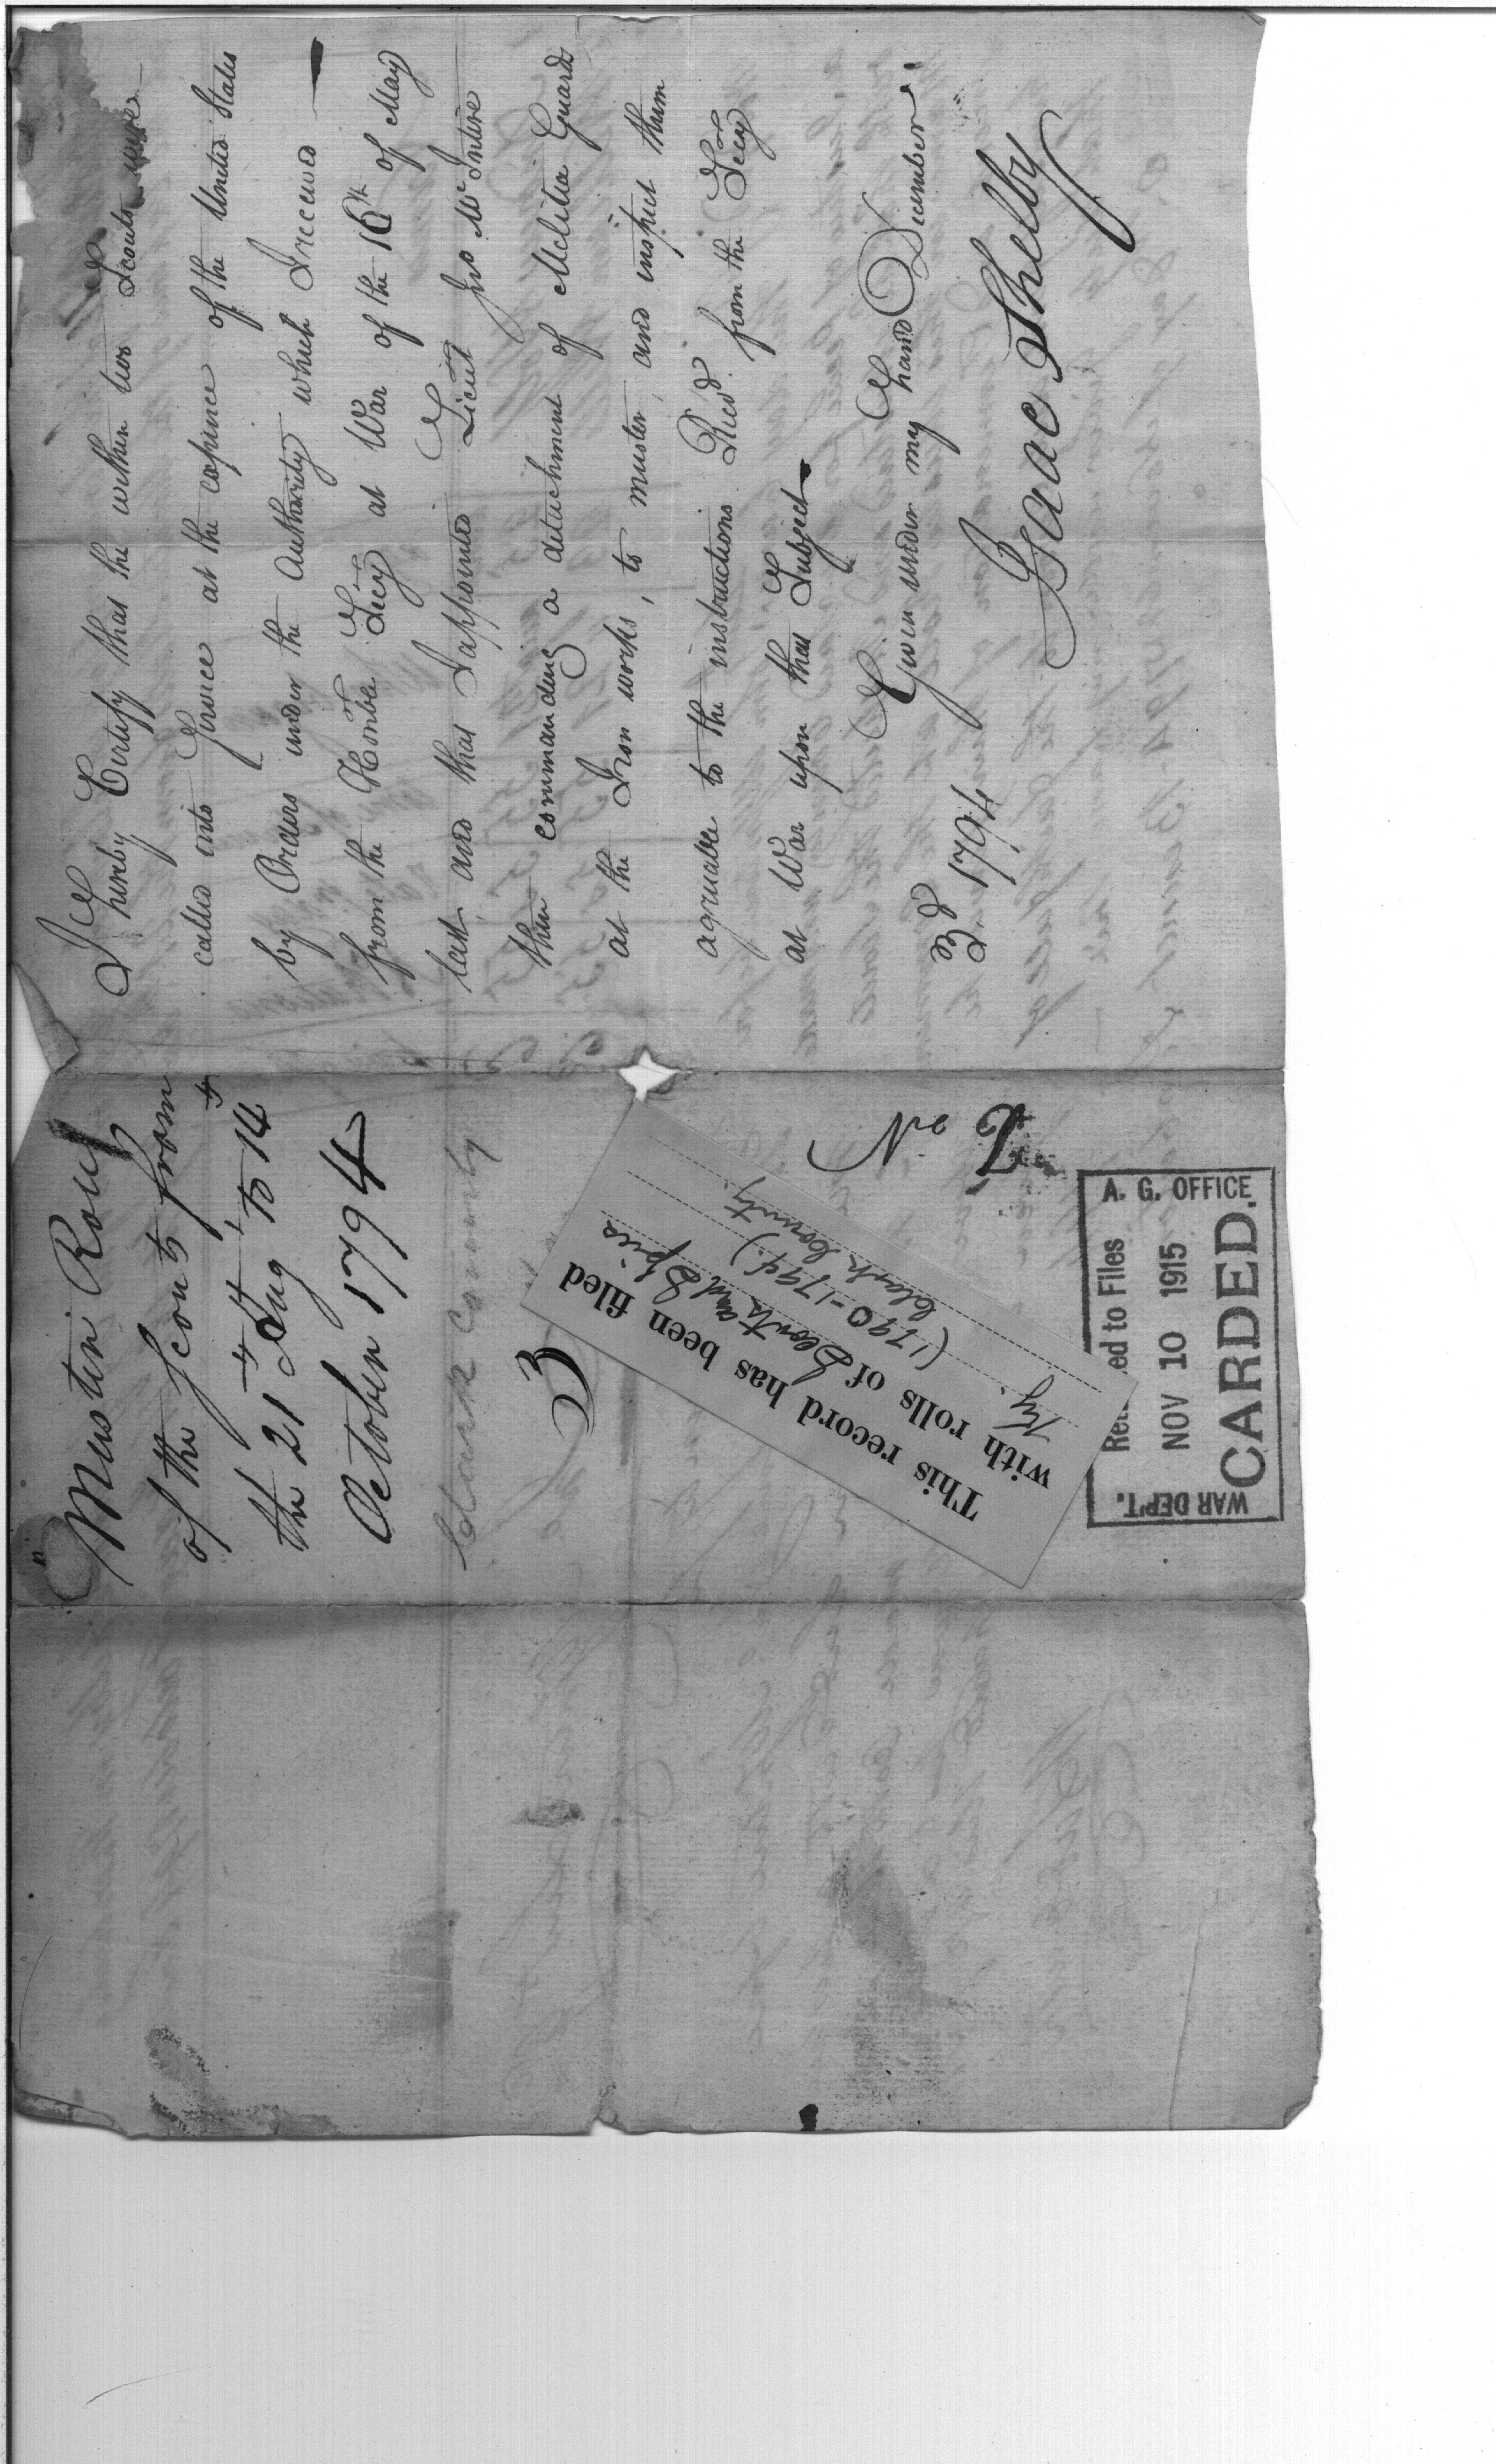 I hereby Certify that the within two Scouts were
called into Service at the expence of the United States
by Orders under the Authority which I received
from the Honble Secy at War of the 16th of May
last, and that I appointed Lieut Jno McIntire
then commanding a detachment of Melitia Guard
at the Iron works, to muster, and inspect them
agreuable to the instructions Recd from the Secy
at War upon that Subject
Given under my hand December
3d 1794
Isaac Shelby
Muster Roll
of the Scouts from
the 21st Aug to 14th
October 1794
Clark County
3
No
2
This record has been filed
with rolls of Scouts and Spies
Ky. (1790-1794.)
(Clark County.
A. G. OFFICE
ed to Files
NOV 10 1915
CARDED.
WAR DEPT.